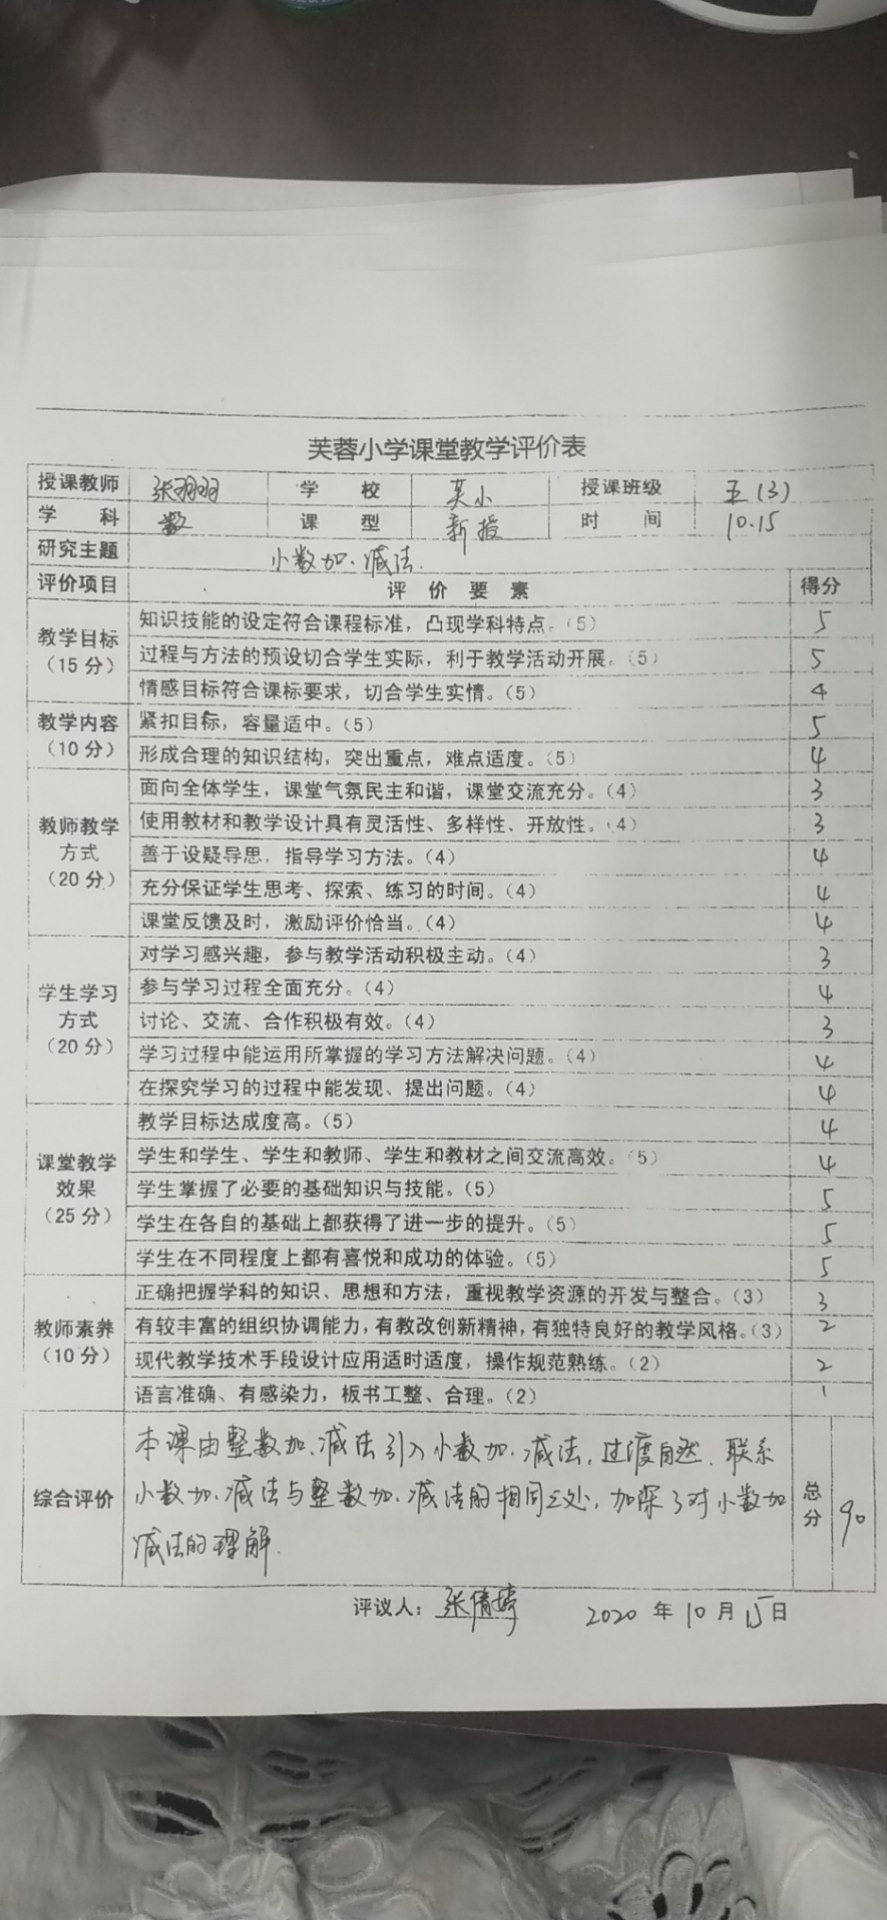 芙蓉小学课堂教学评价表
授课教师 张羽羽 学 校 芙小 授课班级 五(3)
学 科 数 课 型 新授 时 间 10.15
研究主题 小数加、减法.
评价项目 评 价 要 素 得分
教学目标（15分） 知识技能的设定符合课程标准，凸现学科特点。（5） 5
过程与方法的预设切合学生实际，利于教学活动开展。（5） 5
情感目标符合课标要求，切合学生实情。（5） 4
教学内容（10分） 紧扣目标，容量适中。（5） 5
形成合理的知识结构，突出重点，难点适度。（5） 4
教师教学方式（20分） 面向全体学生，课堂气氛民主和谐，课堂交流充分。（4） 3
使用教材和教学设计具有灵活性、多样性、开放性。（4） 3
善于设疑导思，指导学习方法。（4） 4
充分保证学生思考、探索、练习的时间。（4） 4
课堂反馈及时，激励评价恰当。（4） 4
学生学习方式（20分） 对学习感兴趣，参与教学活动积极主动。（4） 3
参与学习过程全面充分。（4） 4
讨论、交流、合作积极有效。（4） 3
学习过程中能运用所掌握的学习方法解决问题。（4） 4
在探究学习的过程中能发现、提出问题。（4） 4
课堂教学效果（25分） 教学目标达成度高。（5） 4
学生和学生、学生和教师、学生和教材之间交流高效。（5） 4
学生掌握了必要的基础知识与技能。（5） 5
学生在各自的基础上都获得了进一步的提升。（5） 5
学生在不同程度上都有喜悦和成功的体验。（5） 5
教师素养（10分） 正确把握学科的知识、思想和方法，重视教学资源的开发与整合。（3） 3
有较丰富的组织协调能力，有教改创新精神，有独特良好的教学风格。（3） 2
现代教学技术手段设计应用适时适度，操作规范熟练。（2） 2
语言准确、有感染力，板书工整、合理。（2） 1
综合评价 本课由整数加、减法引入小数加、减法，过渡自然、联系
小数加、减法与整数加、减法的相同之处，加深了对小数加
减法的理解.
总分 90
评议人：张倩婷 2020 年 10 月 15 日